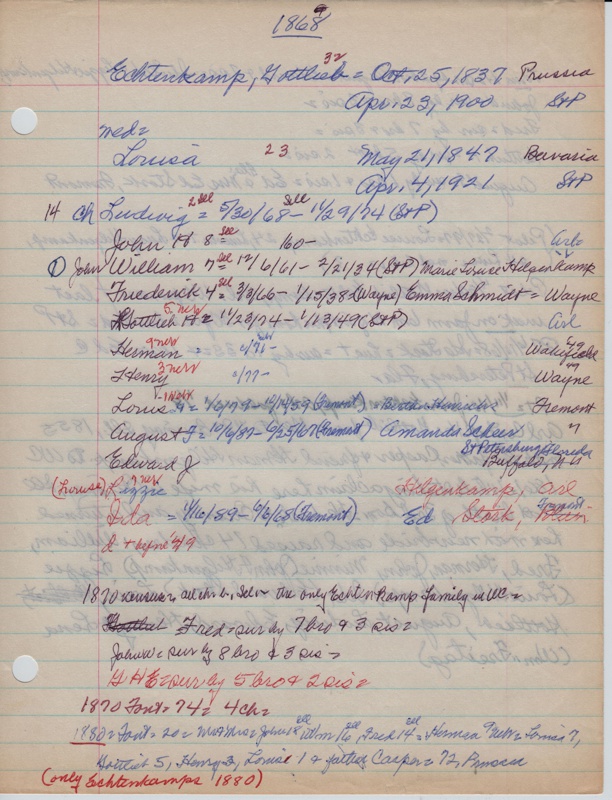 1868 9
Echtenkamp, Gottlieb 32 = Oct. 25, 1837 Prussia
Apr. 23, 1900 StP
med =
Louisa 23 May 21, 1847 Bavaria
Apr. 4, 1921 StP
14 ch Ludwig = 2 Ill 5/30/68 - Ill 1/29/74 (StP)
John H. 8 = 160 - Arl
① John William 7 = Ill 12/6/61 - 2/21/34 (StP) Marie Louise Hilgenkamp
Friederick 4 = Ill 3/3/66 - 1/15/38 (Wayne) Emma Schmidt = Wayne
Gottlieb H = 5 nebr 11/23/74 - 1/13/49 (StP) Arl
Herman = 9 nebr c/71 - Wakefield 49
Henry 3 nebr c/77 - Wayne 49
Louis F = 1 nebr 1/6/79 - 10/14/59 (Fremont) = Fremont
August F = 10/6/87 - 6/25/67 (Fremont) Amanda Scheer "
Edward J St Petersburg Floreda
Buffalo, N Y
(Louise) Lizzie 7 nebr Hilgenkamp, Arl
Ida = 4/16/89 - 6/6/68 (Fremont) Ed Stork, Fremont
d + before '49
1870 census = all ch b, Ill = the only Echtenkamp family in WC =
Gottlieb Fred = sur by 7 bro & 3 sis =
John W = sur by 8 bro & 3 sis =
G H E = sur by 5 bro & 2 sis =
1870 Font = 74 = 4 ch =
1880 = Font = 20 = Mr & Mrs = John 18 Ill, Wm 16 Ill, Fred 14 Ill = Herman 9 Nebr = Louisa 7,
Gottlieb 5, Henry 3, Louise 1 & father Casper = 72, Prussia
(only Echtenkamps 1880)